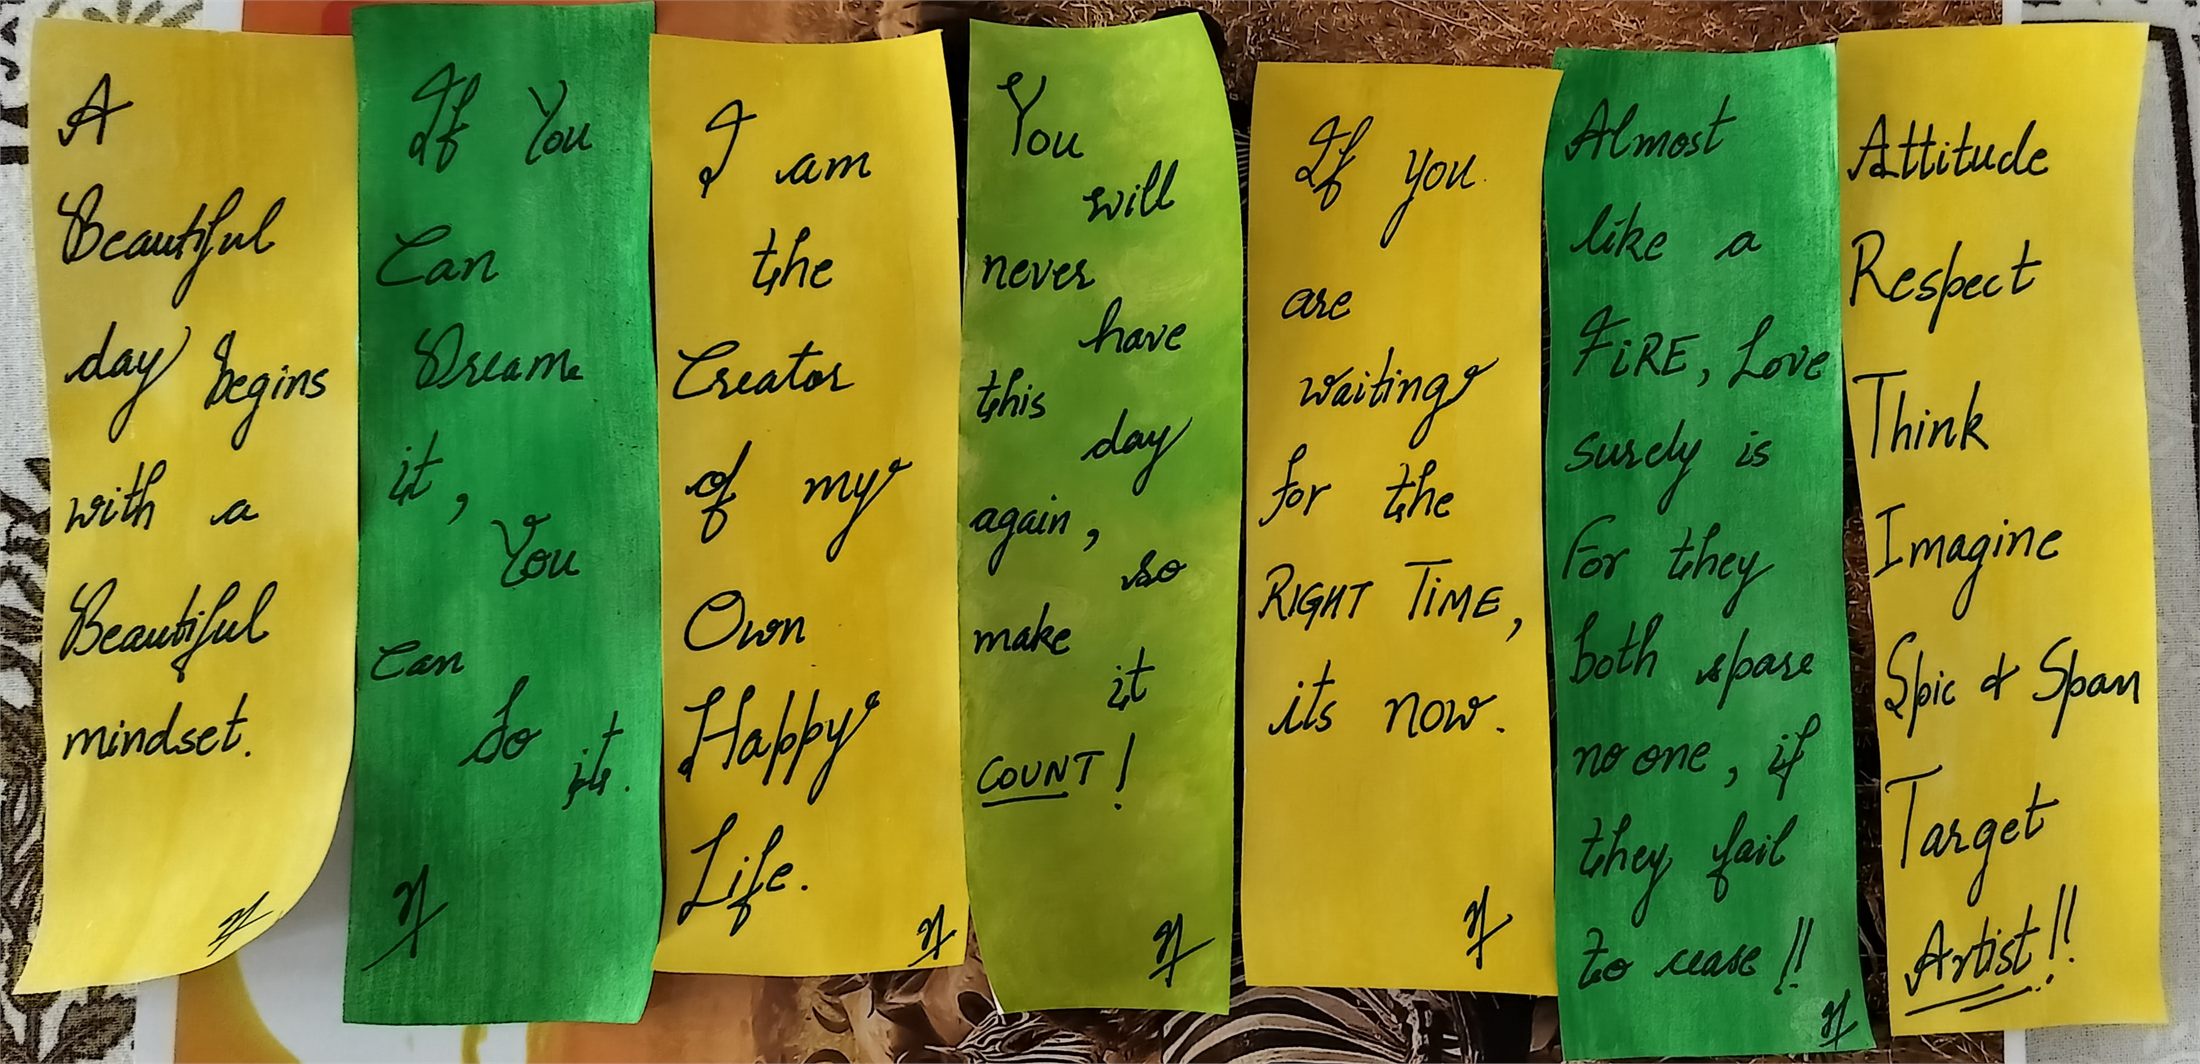 A
Beautiful
day begins
with a
Beautiful
mindset.
If You
Can
Dream
it,
You
Can
do it.
I am
the
Creator
of my
Own
Happy
Life.
You
will
never
have
this
day
again,
so
make
it
COUNT!
If you
are
waiting
for the
RIGHT TIME,
its now.
Almost
like a
FiRE, Love
surely is
For they
both spare
no one, if
they fail
to cease!!
Attitude
Respect
Think
Imagine
Spic & Span
Target
Artist!!